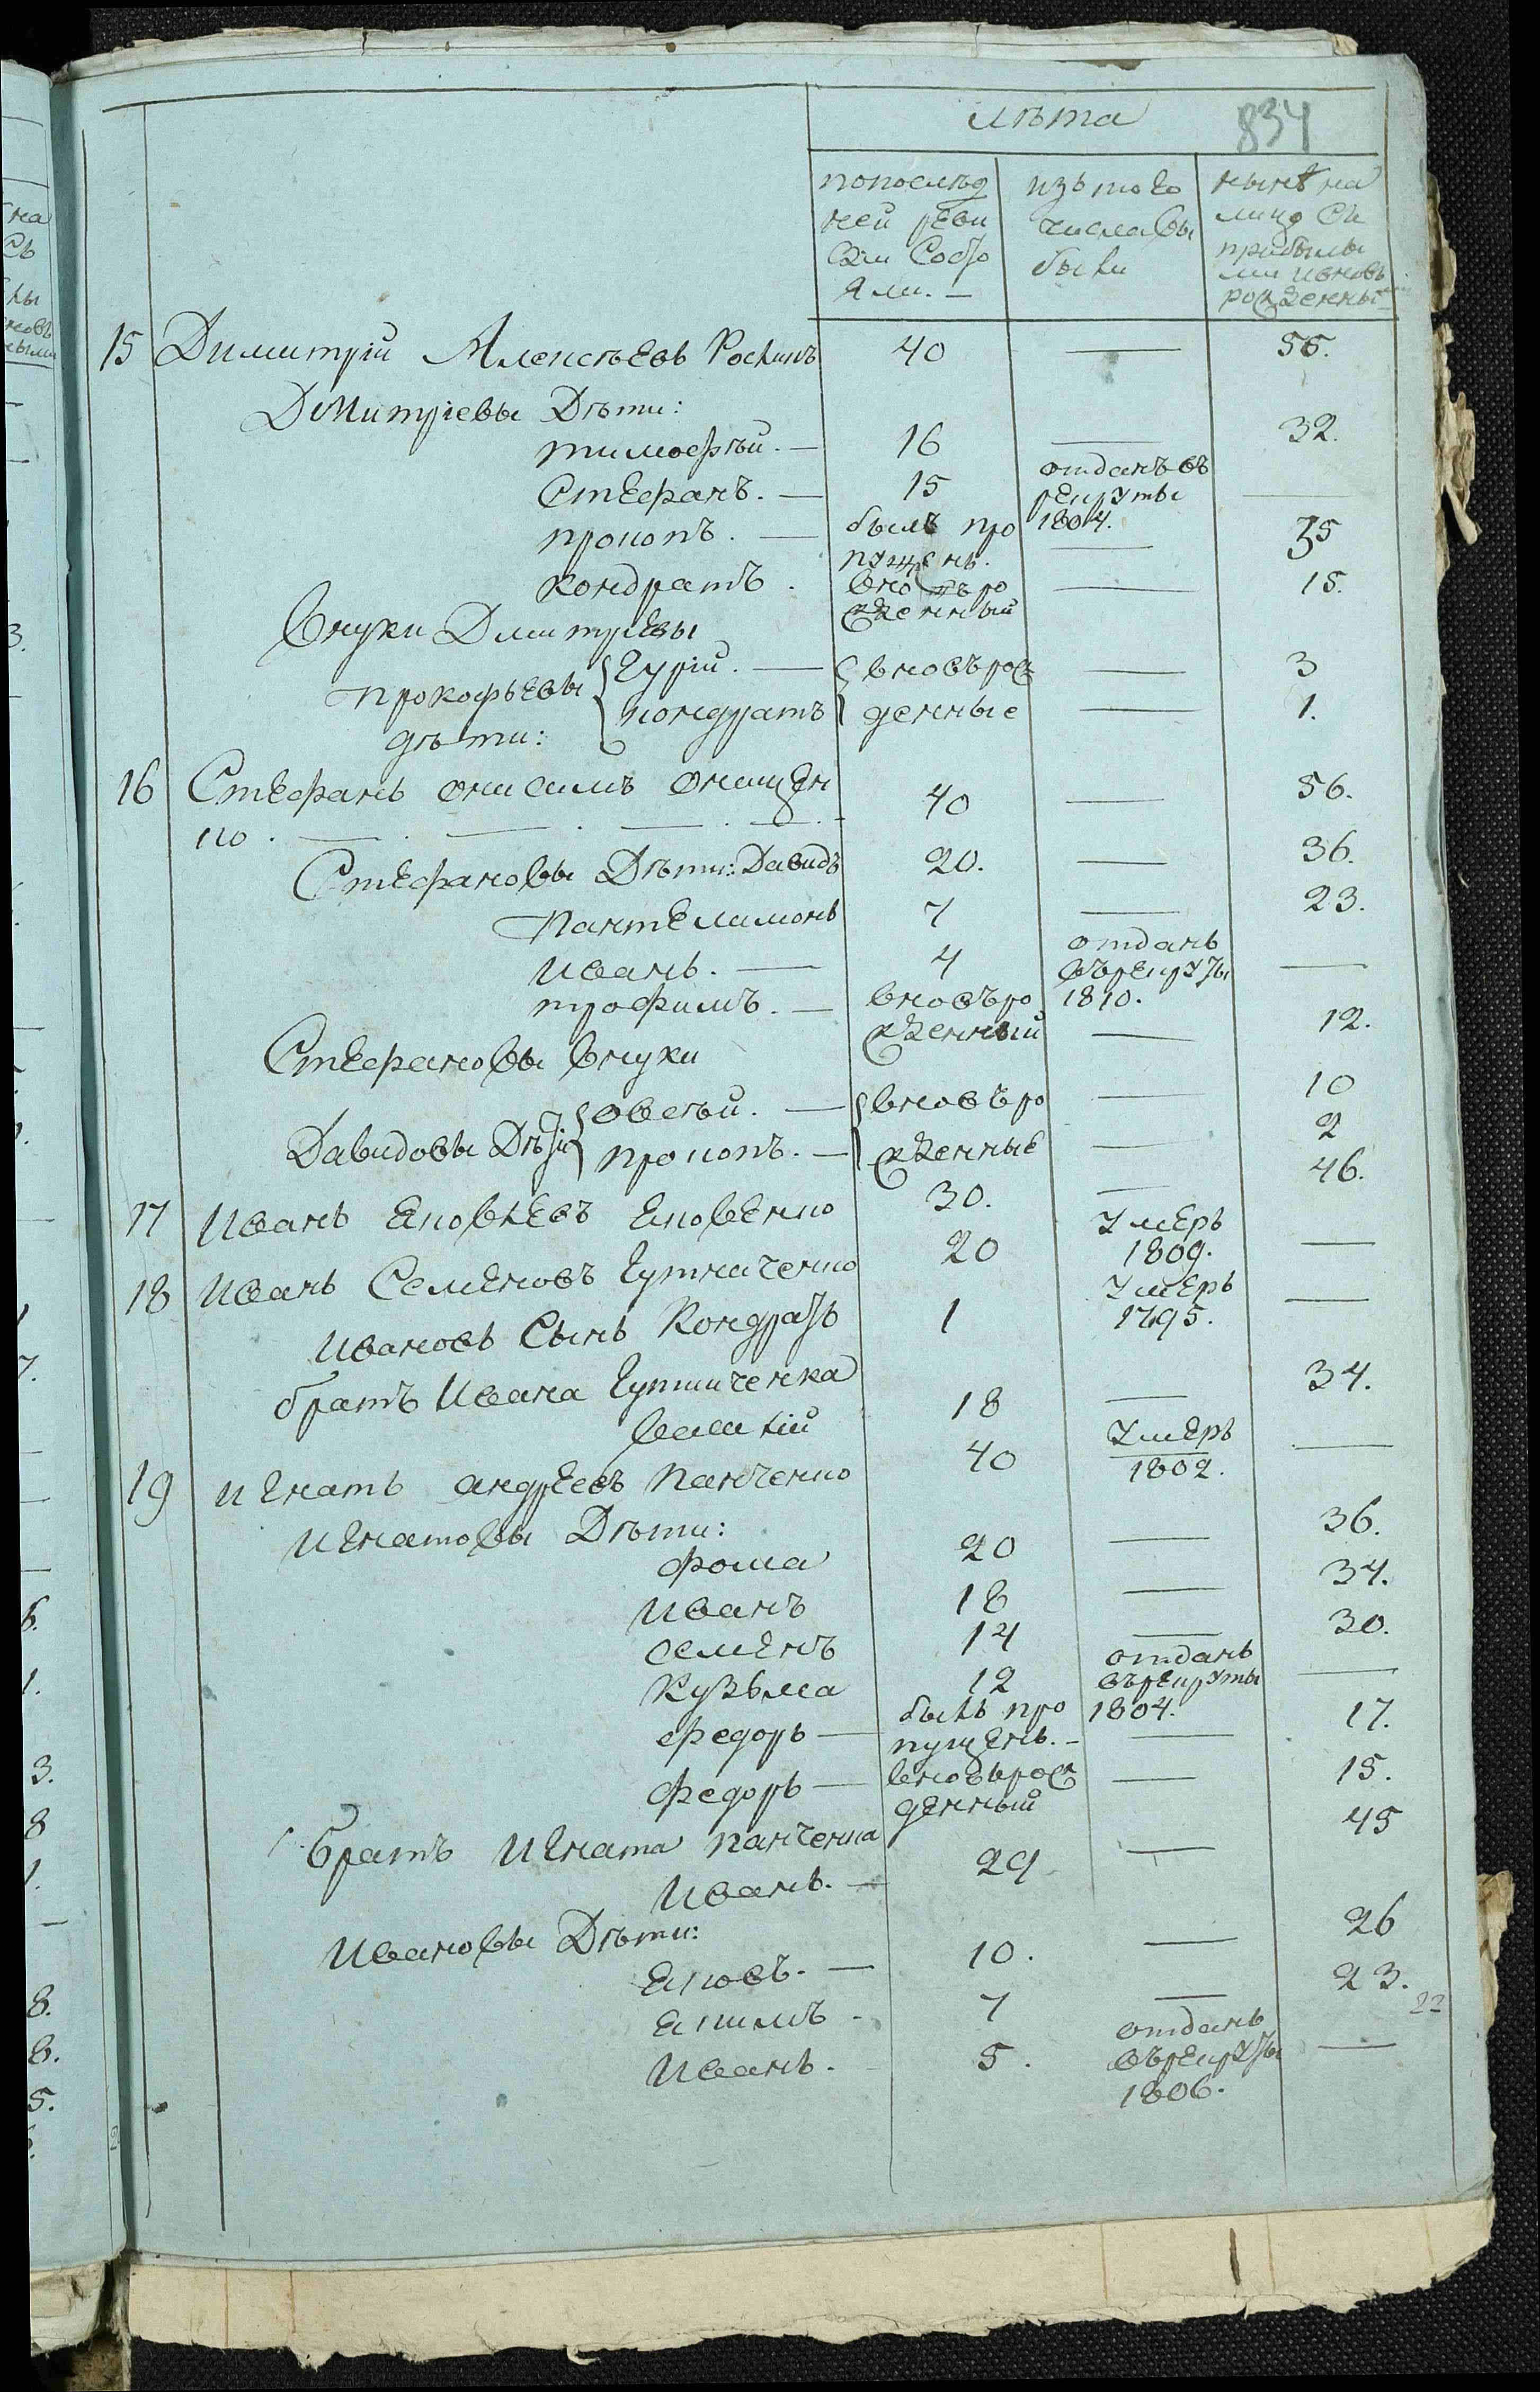 лѣта 834
попослѣд
ней реви
зіи состо
яли. —
изъ того
числа вы
было
нынѣ на
лицо съ
прибылы
ми ивновь
рожденны
15 Димитрій Алексѣевъ Роскинъ 40 — 56.
Дмитріевы Дѣти:
тимофѣй. — 16 — 32.
Стефанъ. — 15 отданъ въ рекруты 1804. —
прокопъ. — былъ про пущенъ. — 35
кондратъ. вновъ ро жденный — 15.
Внуки Дмитріевы
прокофьевы дѣти:
гурій. — вновъ рож — 3
кондратъ денные — 1.
16 Стефанъ онисимъ онищен
ко. — 40 — 56.
Стефановы Дѣти: Давидъ 20. — 36.
Пантелимонъ 7 — 23.
Иванъ. — 4 отданъ въ рекруты 1810. —
трофимъ. — вновъ ро жденный — 12.
Стефановы внуки
Давидовы Дѣти
овсѣй. — вновъ ро — 10
прокопъ. — жденные — 2
17 Иванъ Яковлевъ Яковенко 30. — 46.
18 Иванъ Семеновъ Гутниченко 20 умеръ 1809. —
Ивановъ Сынъ Кондратъ 1 умеръ 1795. —
братъ Ивана Гутниченка
василій 18 — 34.
19 Игнатъ андреевъ Панченко 40 умеръ 1802. —
Игнатовы Дѣти:
фома 20 — 36.
Иванъ 18 — 34.
семенъ 14 — 30.
Кузьма 12 отданъ въ рекруты 1804. —
федоръ — былъ про пущенъ. — — 17.
федоръ — вновърож денный — 15.
братъ Игната панченка
Иванъ. — 29 — 45
Ивановы Дѣти:
Яковъ. — 10. — 26
Якимъ. 7 — 23.
22
Иванъ. 5. отданъ въ рекруты 1806. —